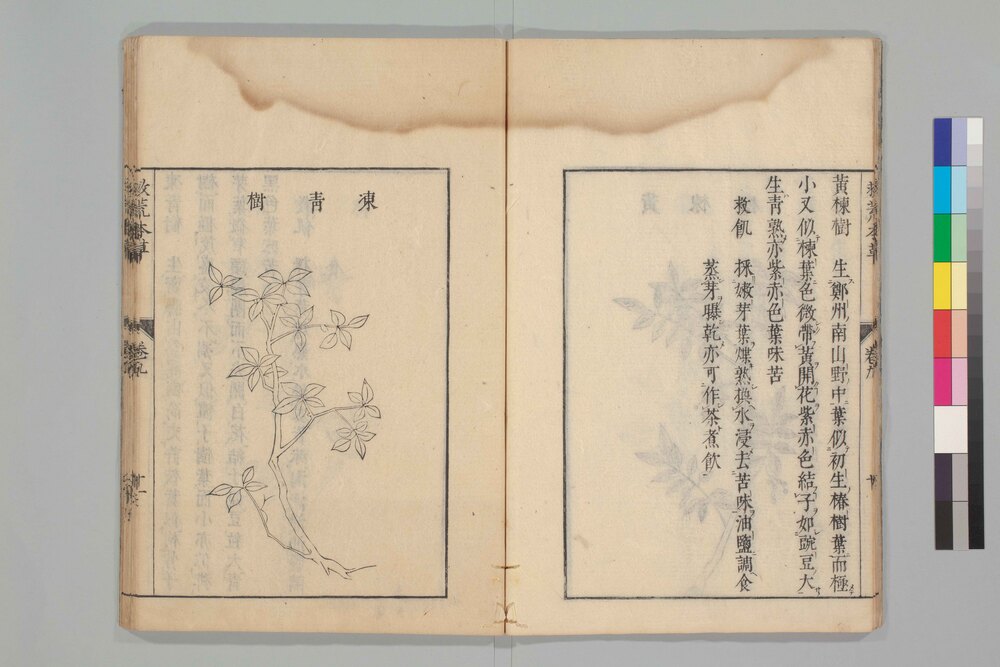 黄楝樹　生鄭州南山野中葉似初生椿樹葉而極
小又似楝葉色微帶黄開花紫赤色結子如豌豆大
生青熟亦紫赤色葉味苦
救飢　採嫩芽葉煠熟換水浸去苦味油鹽調食
蒸芽曝乾亦可作茶煮飲
凍青樹
救荒本草
卷九